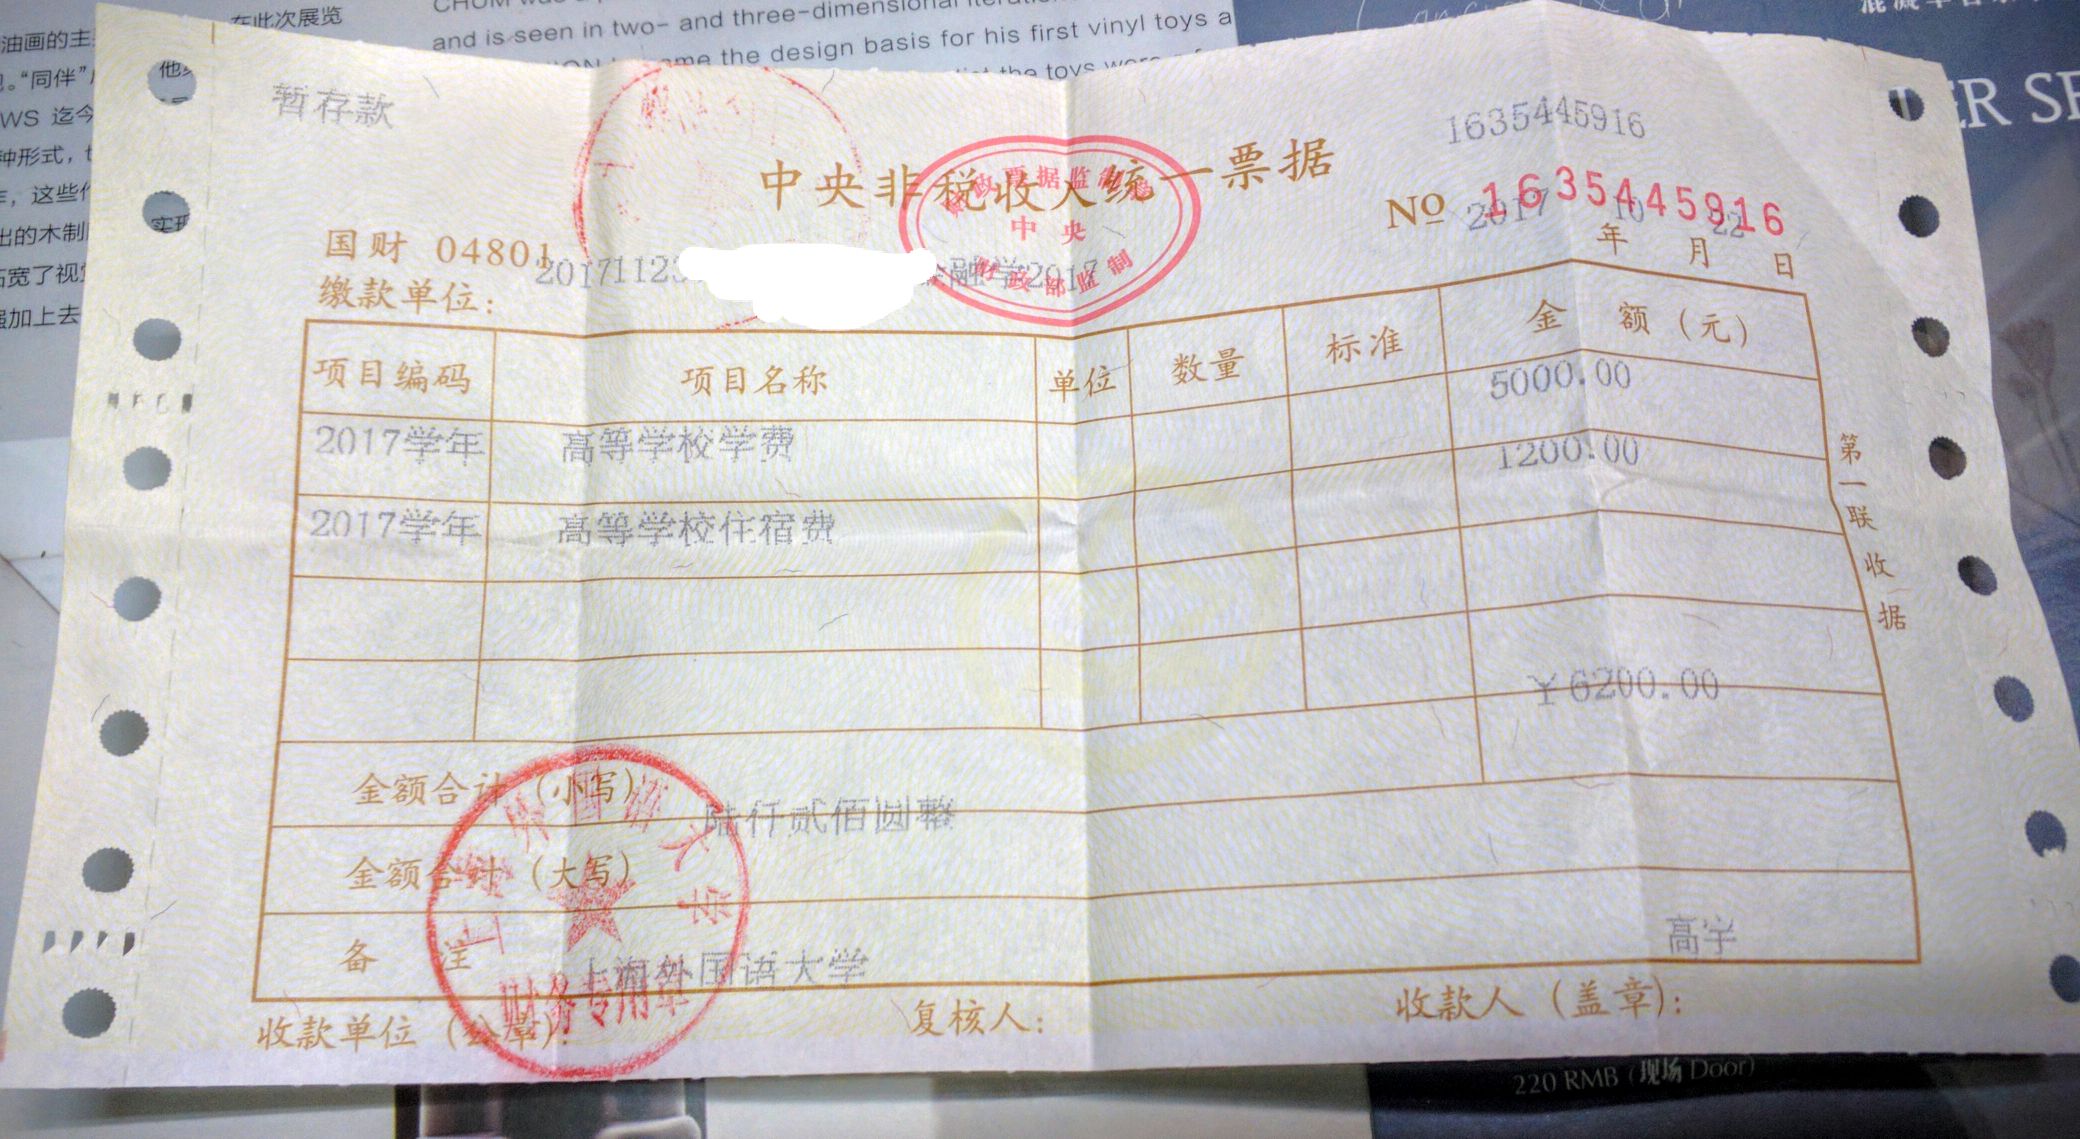 在此次展览
油画的主
“同伴”
WS 迄今
种形式，
这些
出的木制
强加上去
and is seen in two- and three-dimensional
the design basis for his first vinyl toys a
the toys were
ER SE
暂存款
1635445916
中央非税收入统一票据
财政票据监制章
中央
财政部监制
NO 1635445916
2017 10 22
年 月 日
国财 04801
缴款单位：
2017112 金融学2017
项目编码 项目名称 单位 数量 标准 金 额（元）
2017学年 高等学校学费 5000.00
2017学年 高等学校住宿费 1200.00
第一联 收据
金额合计（小写） ￥6200.00
金额合计（大写） 陆仟贰佰圆整
备 注
上海外国语大学
财务专用章
上海外国语大学
高宇
收款单位（公章）： 复核人： 收款人（盖章）：
220 RMB (现场 Door)